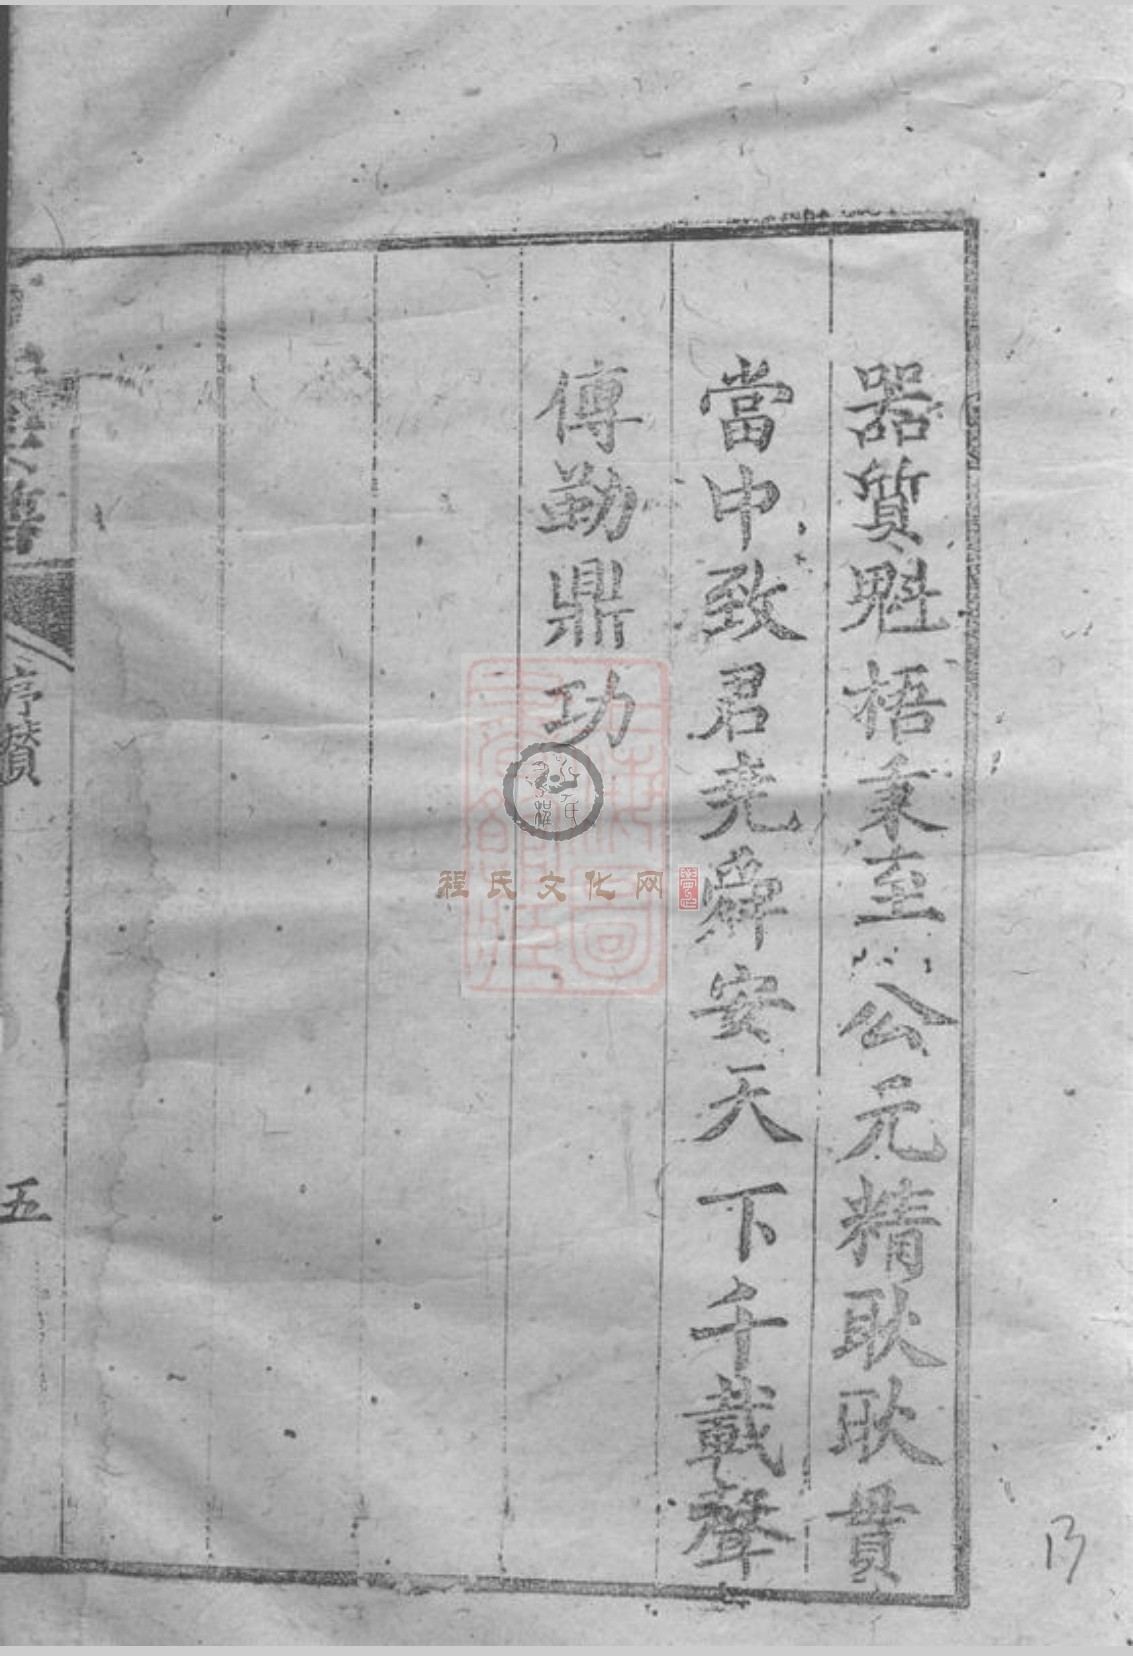 器質魁梧秉至公元精耿耿貫
當中致君尭舜安天下千載聲
傳勤鼎功
譜
序贊
五
程氏文化网
13